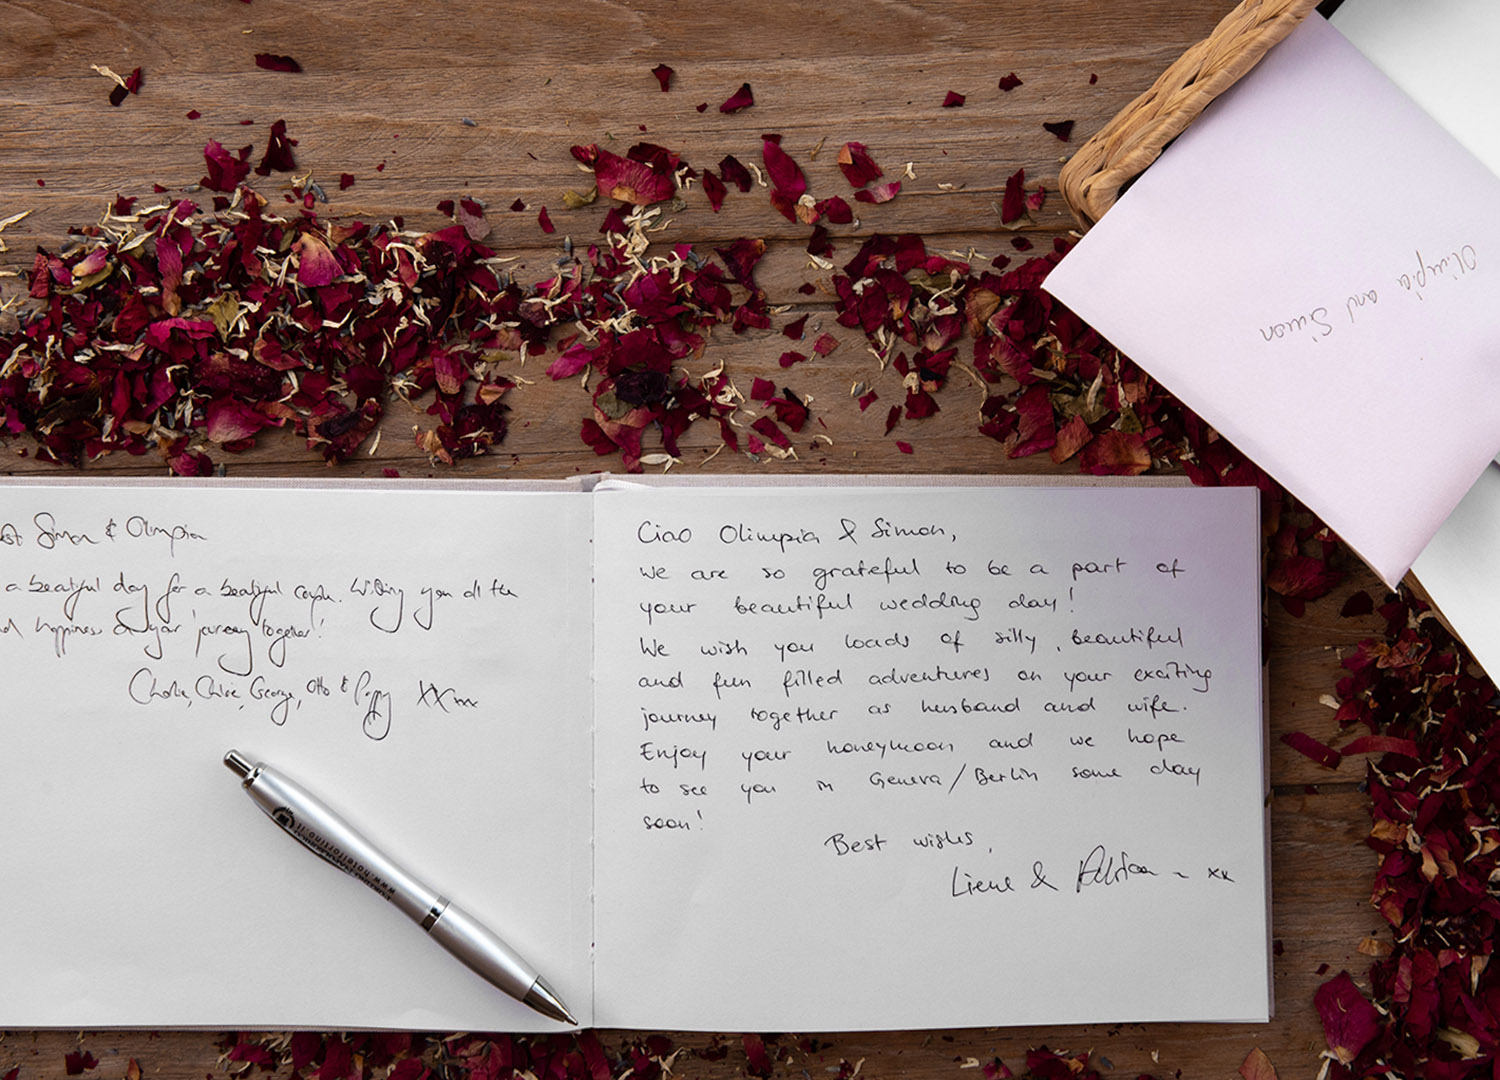 Simon & Olimpia
a beautiful day for a beautiful couple. Wishing you all the
happiness on your journey together!
Charlie, Chloe, George, Otto & Poppy XX
Ciao Olimpia & Simon,
We are so grateful to be a part of
your beautiful wedding day!
We wish you loads of silly, beautiful
and fun filled adventures on your exciting
journey together as husband and wife.
Enjoy your honeymoon and we hope
to see you in Geneva/Berlin some day
soon!
Best wishes,
Liene & Adrian xx
Olimpia and Simon
www.hotelfortino.it